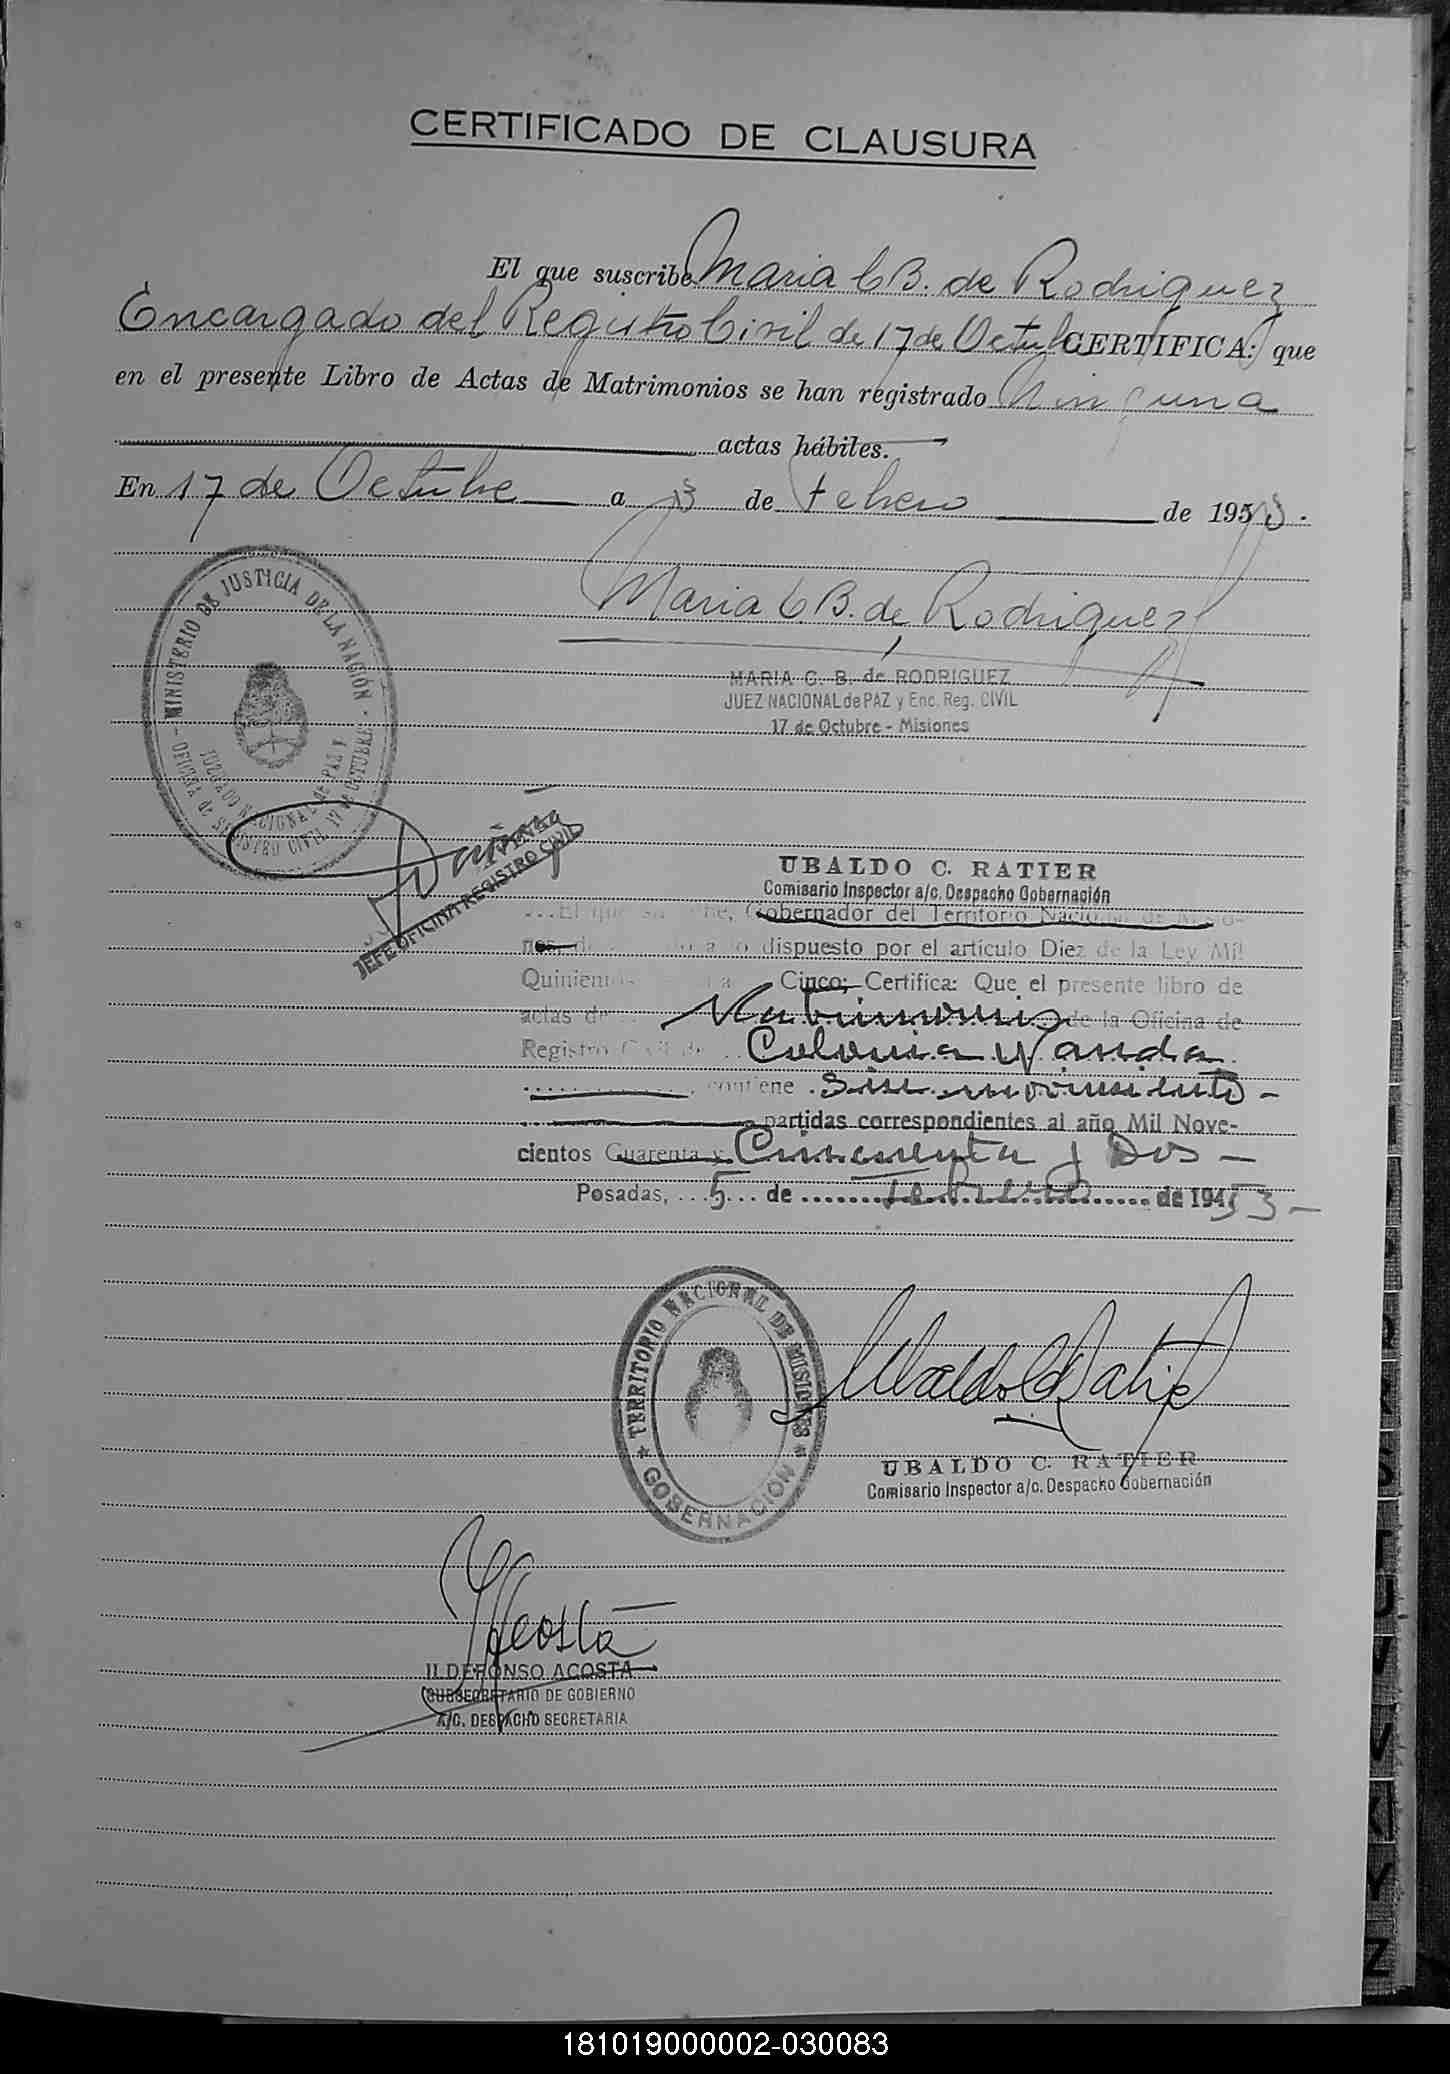 CERTIFICADO DE CLAUSURA
El que suscribe Maria C B. de Rodriguez
Encargado del Registro Civil de 17 de Octubre CERTIFICA: que
en el presente Libro de Actas de Matrimonios se han registrado Ninguna
actas hábiles.
En 17 de Octubre a 3 de Febrero de 1953.
Maria C. B. de Rodriguez
MINISTERIO DE JUSTICIA DE LA NACIÓN
JUZGADO NACIONAL de PAZ y
OFICINA de REGISTRO CIVIL 17 de OCTUBRE
MARIA C. B. de RODRIGUEZ
JUEZ NACIONAL de PAZ y Enc. Reg. CIVIL
17 de Octubre - Misiones
JEFE OFICINA REGISTRO CIVIL
UBALDO C. RATIER
Comisario Inspector a/c. Despacho Gobernación
El que suscribe, Gobernador del Territorio Nacional de Misio-
nes, de a lo dispuesto por el artículo Diez de la Ley Mil
Quinientos Cinco; Certifica: Que el presente libro de
actas de Matrimonio de la Oficina de
Registro Civil de Colonia Wanda
contiene sin movimiento -
partidas correspondientes al año Mil Nove-
cientos Guarenta y Cincuenta y Dos -
Posadas, 5 de Febrero de 1953 -
TERRITORIO NACIONAL DE MISIONES
GOBERNACIÓN
Ubaldo C Ratier
UBALDO C. RATIER
Comisario Inspector a/c. Despacho Gobernación
Acosta
ILDEFONSO ACOSTA
SUBSECRETARIO DE GOBIERNO
A/C. DESPACHO SECRETARIA
U
V
Y
Z
181019000002-030083